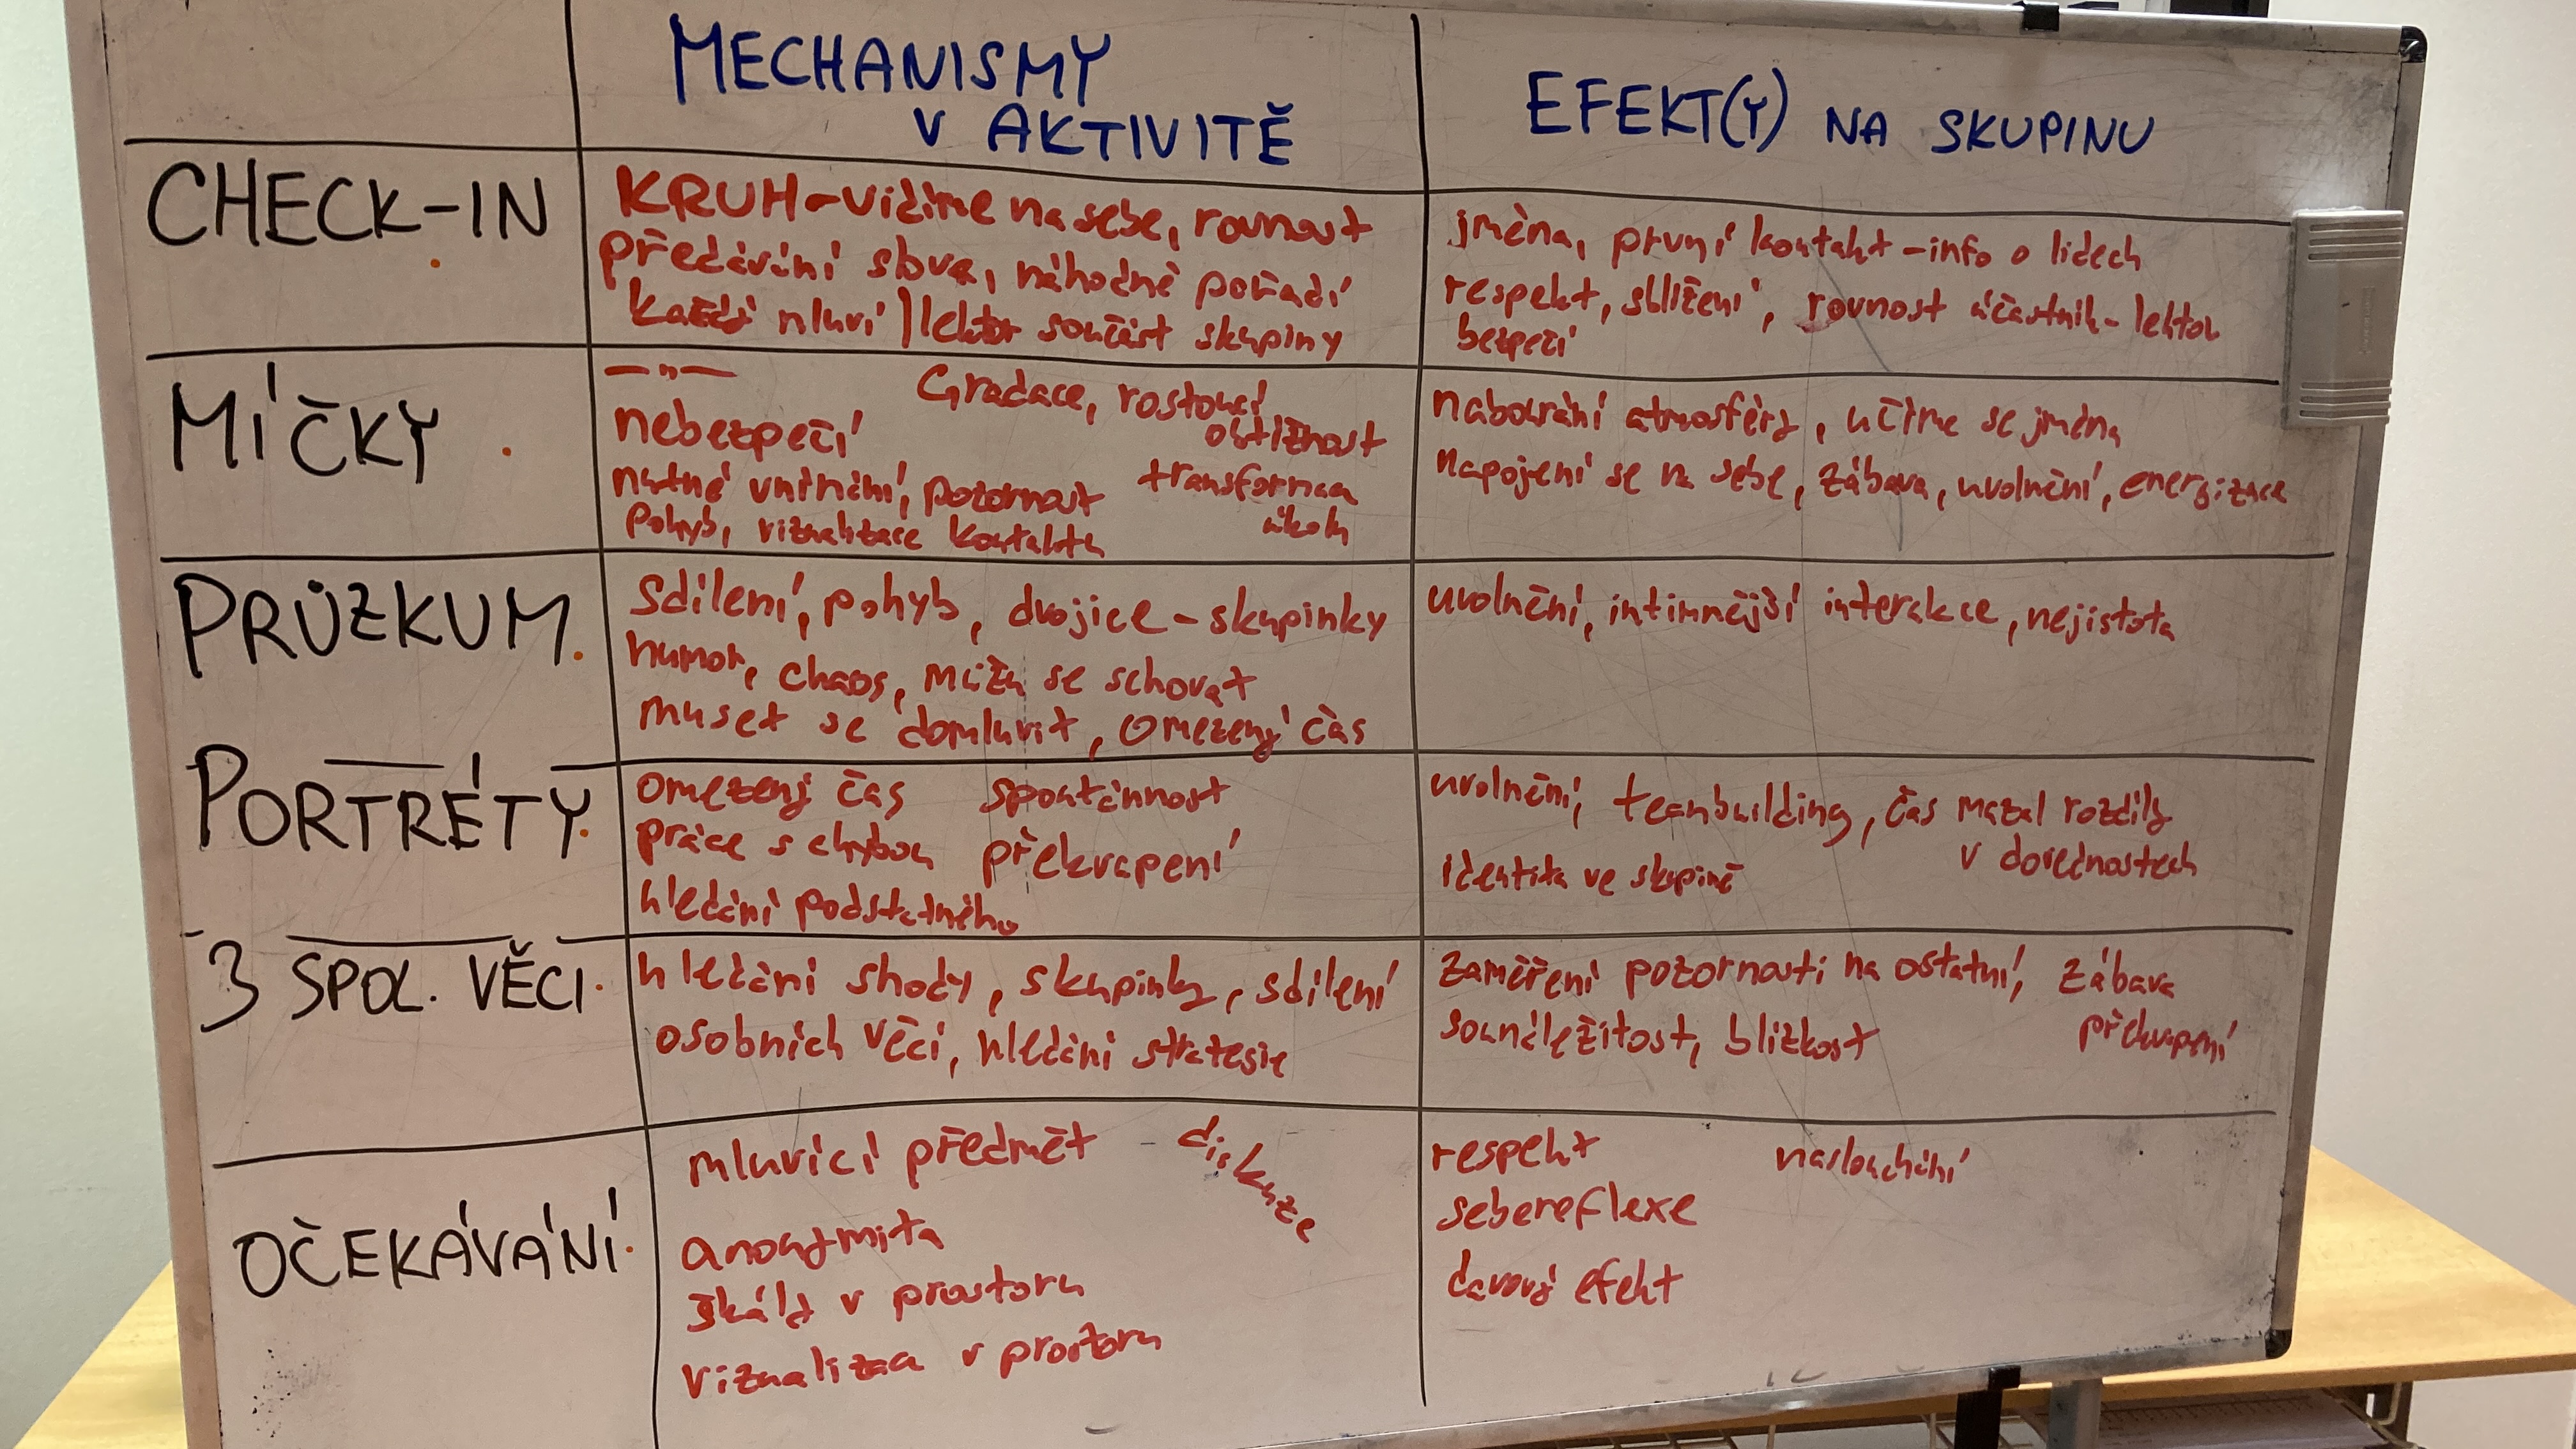 MECHANISMY
V AKTIVITĚ
EFEKT(Y) NA SKUPINU
CHECK-IN
KRUH - vidíme na sebe, rovnost
předávání slova, náhodné pořadí
každý mluví / lektor součást skupiny
jména, první kontakt - info o lidech
respekt, sblížení, rovnost účastník - lektor
bezpečí
MÍČKY
—〃—
Gradace, rostoucí
obtížnost
nebezpečí
nutné vnímání, pozornost
transformace
úkolu
pohyb, vizualizace kontaktu
nabourání atmosféry, učíme se jména
napojení se na sebe, zábava, uvolnění, energizace
PRŮZKUM
Sdílení, pohyb, dvojice - skupinky
humor, chaos, můžu se schovat
muset se domluvit, omezený čas
uvolnění, intimnější interakce, nejistota
PORTRÉTY
omezený čas spontánnost
práce s chybou překvapení
hledání podstatného
uvolnění, teambuilding, čas mazal rozdíly
v dovednostech
identita ve skupině
3 SPOL. VĚCI
hledání shody, skupinky, sdílení
osobních věcí, hledání strategie
zaměření pozornosti na ostatní, zábava
sounáležitost, blízkost
překvapení
OČEKÁVÁNÍ
mluvící předmět
diskuze
anonymita
škály v prostoru
vizualizace v prostoru
respekt naslouchání
sebereflexe
davový efekt